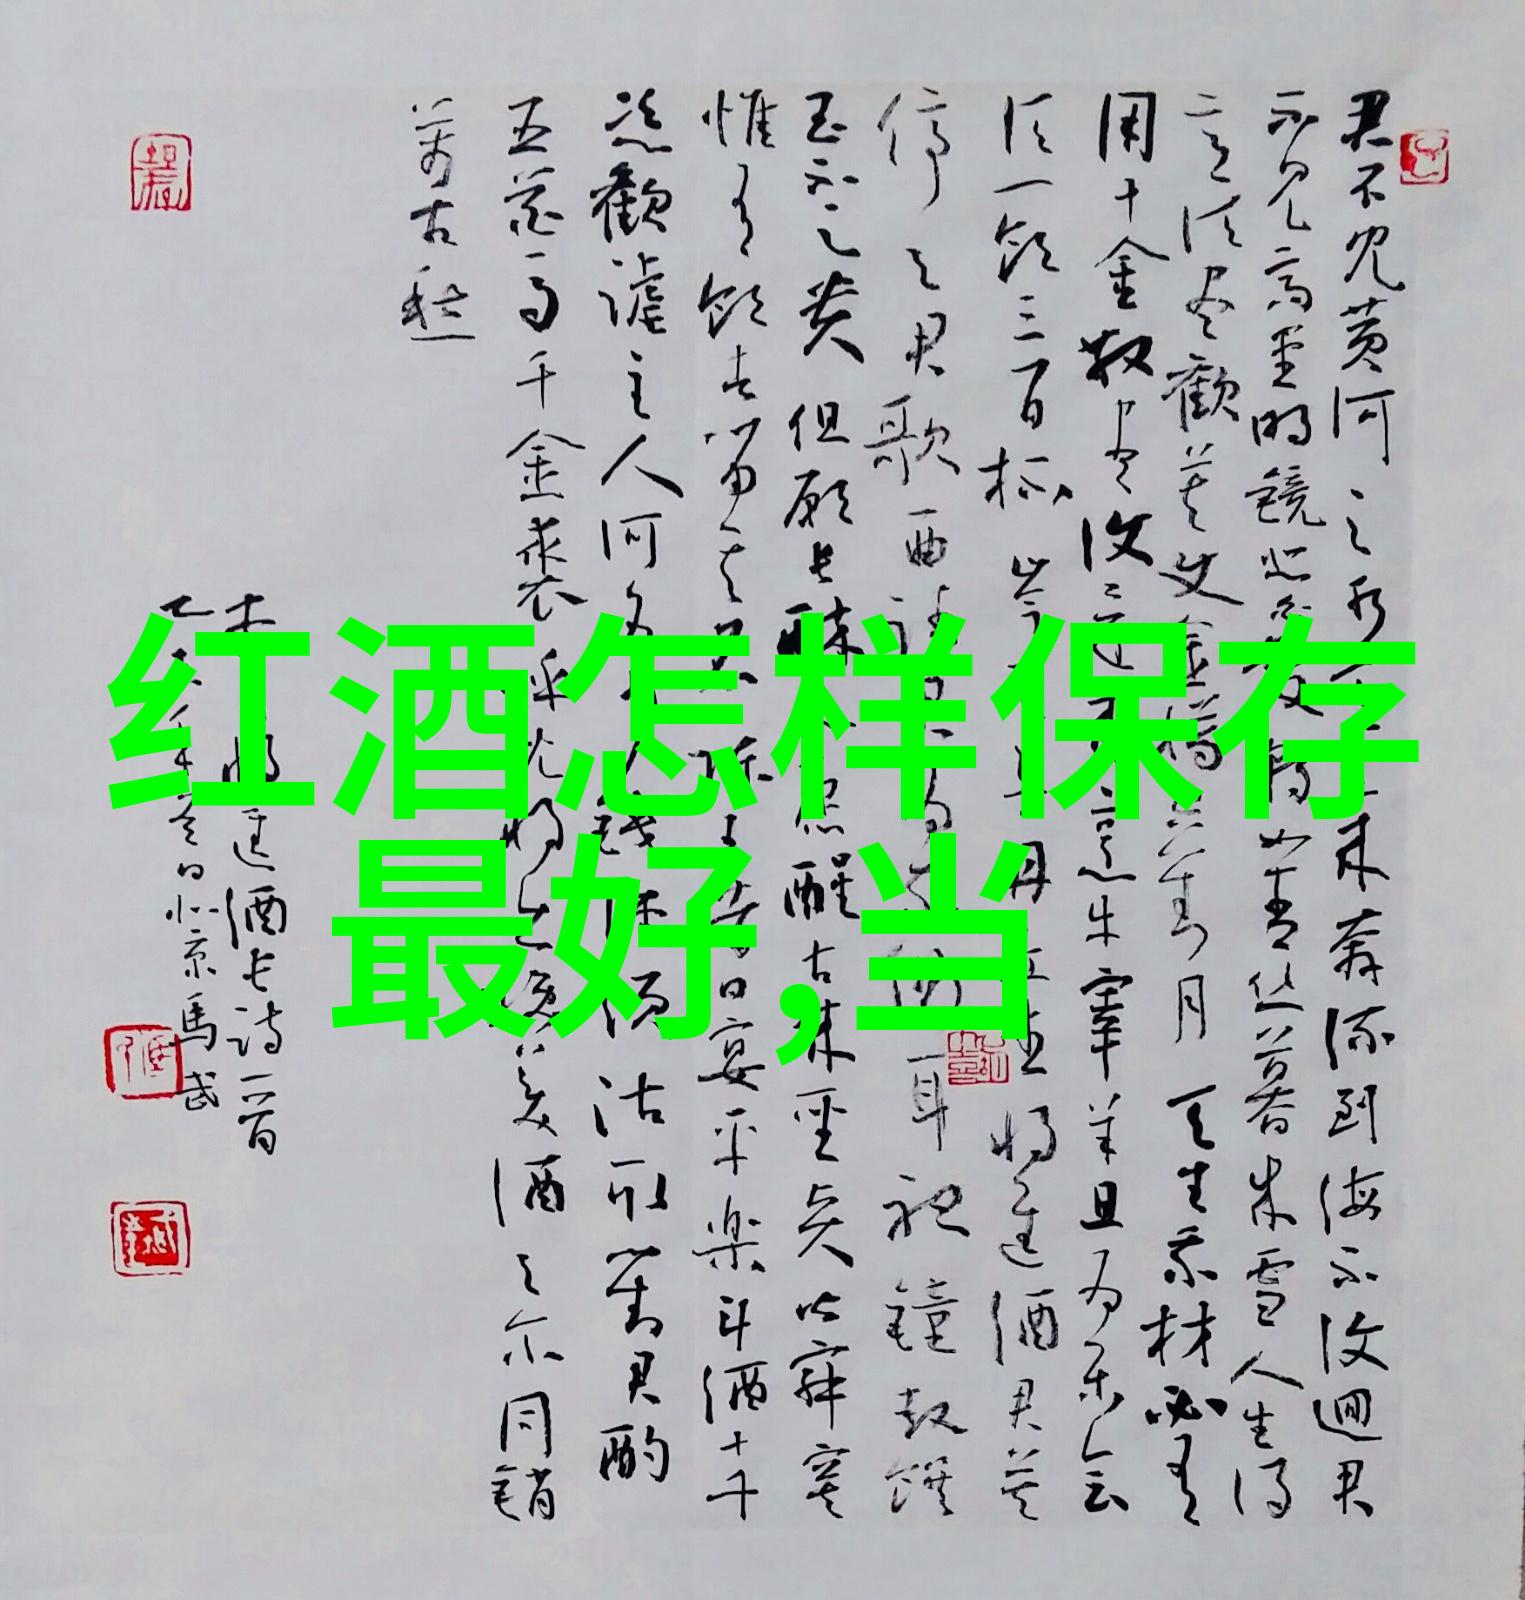 红酒怎样保存
最好,当
君不見黄河之水天上来奔流到海不復迴君
不见高堂明镜悲白发朝如青丝暮成雪人生得
意须尽歡莫使金樽空对月天生我材必有
用千金散尽復还来烹牛宰羊且为乐会
须一饮三百杯岑夫子丹丘生将进酒君莫
停与君歌一曲请君为我侧耳听鐘鼓馔
玉不足贵但愿长醉不愿醒古来圣贤皆寂寞
惟有饮者留其名陈王昔日宴平楽斗酒十千
恣歡謔主人何为言少钱径须沽取对君酌
五花马千金裘呼儿将出换美酒与尔同销
萬古愁
将进酒 诗一首
乙未年 京馬武